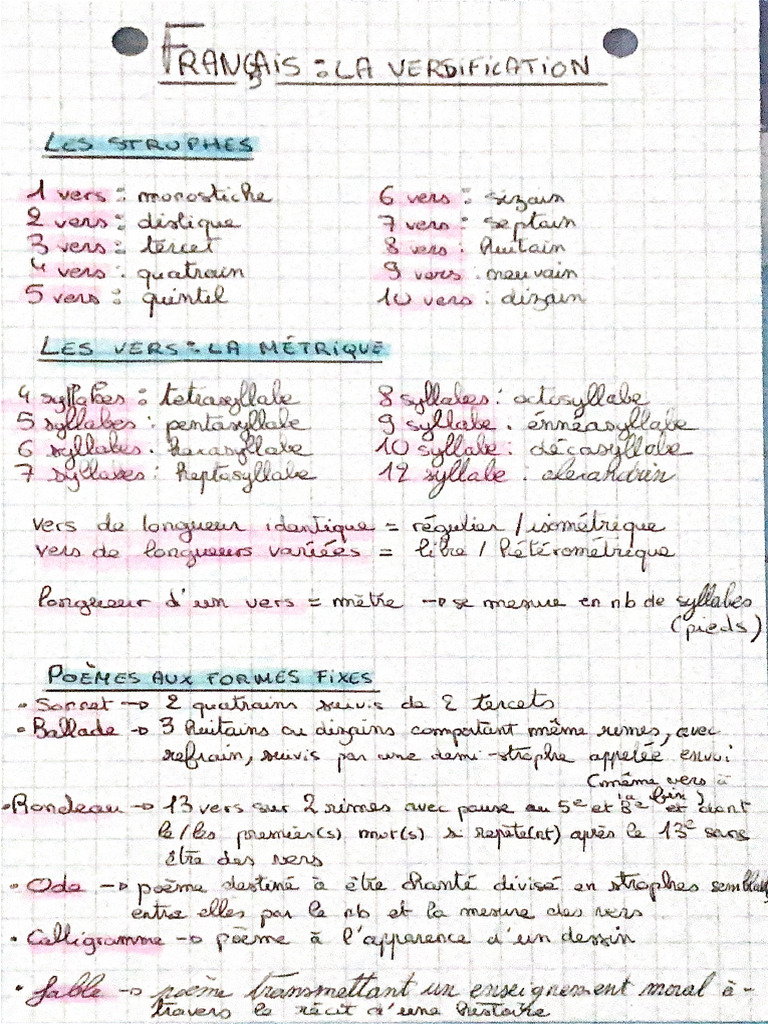 FRANÇAIS : LA VERSIFICATION
LES STROPHES
1 vers : monostiche
2 vers : distique
3 vers : tercet
4 vers : quatrain
5 vers : quintil
6 vers : sizain
7 vers : septain
8 vers : huitain
9 vers : neuvain
10 vers : dizain
LES VERS : LA MÉTRIQUE
4 syllabes : tétrasyllabe
5 syllabes : pentasyllabe
6 syllabes : hexasyllabe
7 syllabes : heptasyllabe
8 syllabes : octosyllabe
9 syllabe : énnéasyllabe
10 syllabe : décasyllabe
12 syllabe : alexandrin
vers de longueur identique = régulier / isométrique
vers de longueurs variées = libre / hétérométrique
longueur d'un vers = mètre → se mesure en nb de syllabes
(pieds)
POÈMES AUX FORMES FIXES
• Sonnet → 2 quatrains suivis de 2 tercets
• Ballade → 3 huitains ou dizains comportant même rimes, avec
refrain, suivis par une demi-strophe appelée envoi
(même vers à
la fin)
• Rondeau → 13 vers sur 2 rimes avec pause au 5e et 8e et dont
le/les premier(s) mot(s) se répète(nt) après le 13e sans
être des vers
• Ode → poème destiné à être chanté divisé en strophes semblables
entre elles par le nb et la mesure des vers
• Calligramme → poème à l'apparence d'un dessin
• fable → poème transmettant un enseignement moral à-
travers le récit d'une histoire